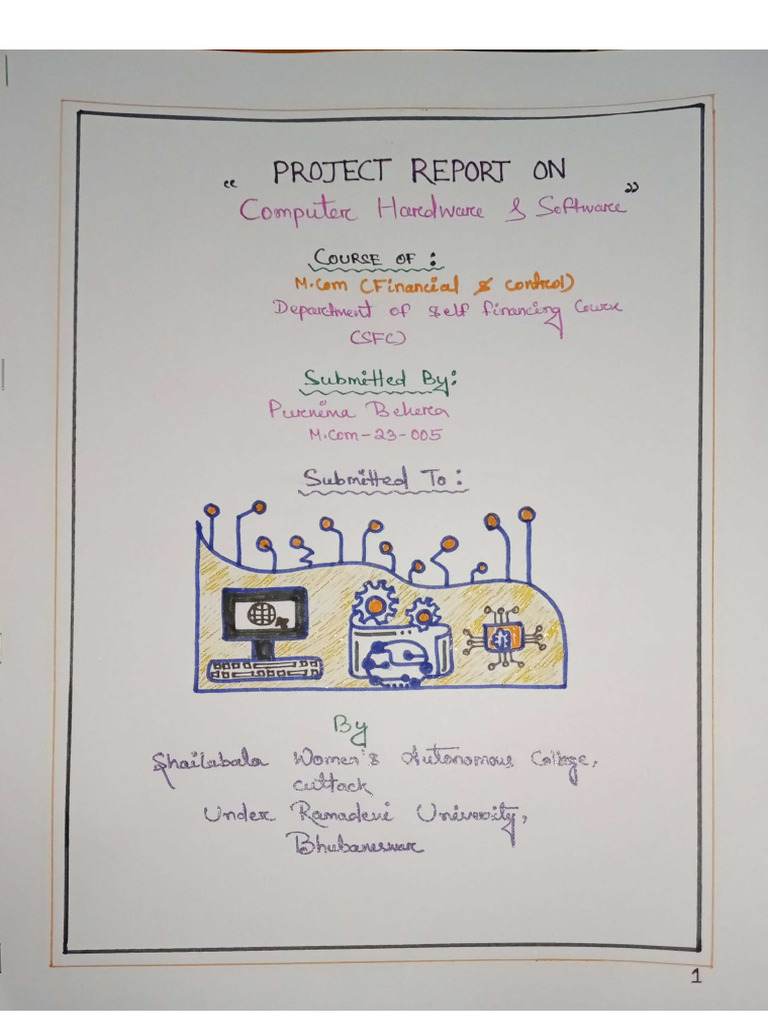 “ PROJECT REPORT ON
Computer Hardware & Software ”
COURSE OF :
M.Com (Financial & control)
Department of self financing Course
(SFC)
Submitted By:
Purnima Behera
M.Com-23-005
Submitted To :
By
Shailabala Women's Autonomous College,
cuttack
Under Ramadevi University,
Bhubaneswar
1